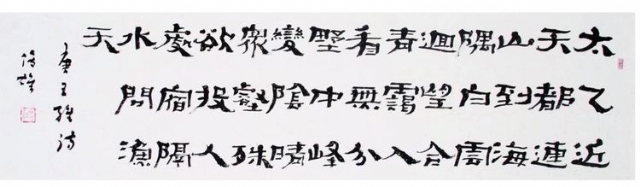 太乙近
天都連
山到海
隅白雲
迴望合
青靄入
看無分
野中峰
變陰晴
衆壑殊
欲投人
處宿隔
水問漁
夫
唐王維詩